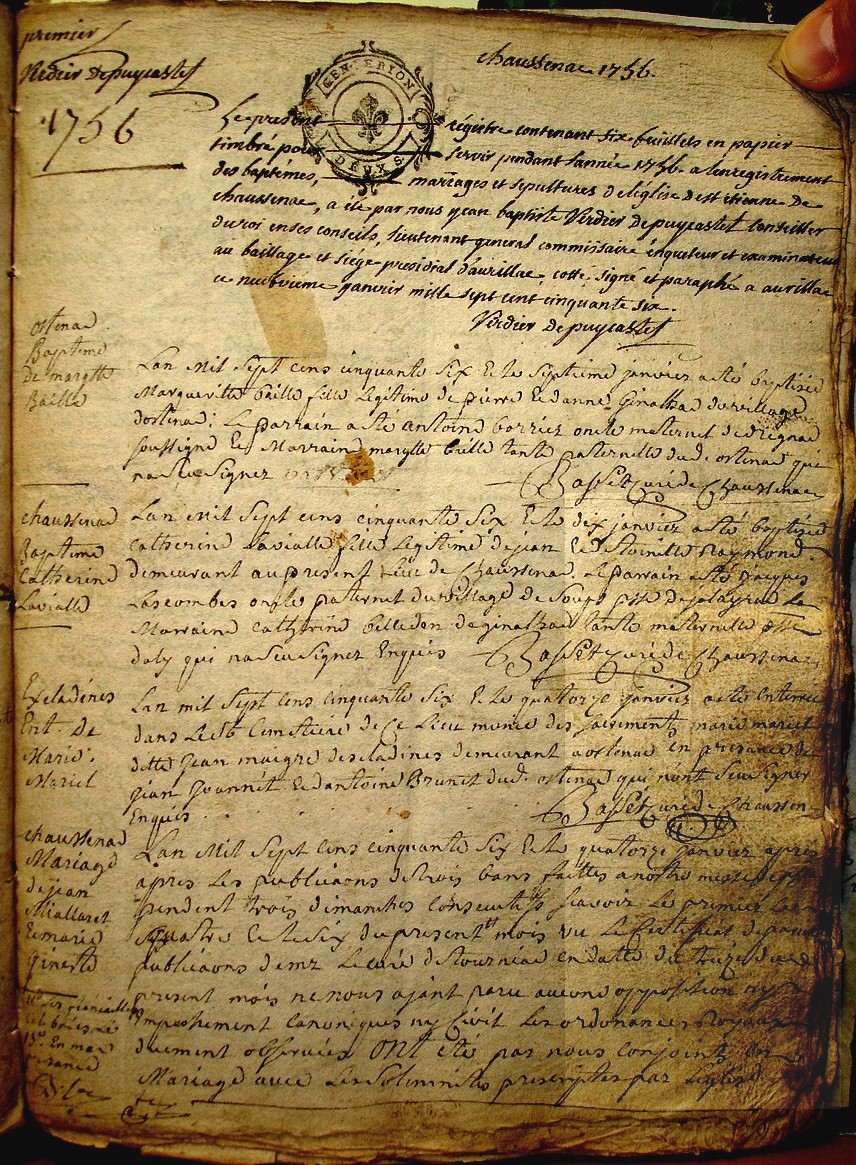 premier
Verdier depuycastel
1756
chaussenac 1756.
GEN. ERION
DEUX S
Le present régistre contenant six feuillets en papier
timbré pour servir pendant l'année 1756. a l'enregistrement
des baptêmes, mariages et sepultures del'église de st etienne de
chaussenac, a été par nous jean baptiste Verdier depuycastel Conseiller
du roi en ses conseils, lieutenant general commissaire enqueteur et examinateur
au baillage et siége presidial d'aurillac, cotté, signé et paraphé a aurillac
ce neufvieme janvier mille sept cent cinquante six.
Verdier depuycastel
ostenac
Baptême
de margtte
Baille
Lan Mil Sept cens cinquante six Et le septieme janvier a eté baptisée
Marguerite baille fille legitime de pierre Et danne Ginalhac du village
dostenac; Le parrain a eté antoine borries oncle maternel
soussigné Et Marraine margtte baille tante paternelle dud. ostenac qui
na seu signer
Basset curé de Chaussenac
chaussenac
Baptême
Catherine
Lavialle
Lan Mil Sept cens cinquante six Et le dix janvier a eté baptisée
catherine Lavialle fille legitime de jean Et de toinette Raymond.
demeurant au present lieu de Chaussenac. Le parrain a eté jacques
Lascombes oncle paternel du village de
Marraine Catherine de ginalhac tante maternelle
daly qui na seu signer Enquis Basset curé de Chaussenac
Escladines
Ent. de
Marie
Mariel
Lan mil sept cens cinquante six Et le quatorze janvier a eté Enterrée
dans Le Cimetiere de Ce Lieu munie des sacrements marie mariel
jean maigre descladines demeurant a ostenac en presance de
jean joannit Et dantoine Brunet dud. ostenac qui n'ont seu signer
Enquis
Basset curé de Chaussenac
chaussenac
Mariage
de jean
Miallaret
Et marie
Gineste
Lan Mil Sept Cens Cinquante six Et le quatorze janvier apres
apres Les publicaons de trois bans faittes a notre messe
pendent trois dimanches consecutifs scavoir Le premier Le
quatre Et le six du present mois vu Le Certificat de
publicaons de mr Le curé de tourniac en datte du treize du
present mois ne nous ajant paru aucune opposition ny
Empeschement Canoniques ny Civil Les ordonances Royaux
duement observées ont été par nous conjoints En
Mariage avec Les Solemnites prescriptes par Leglise